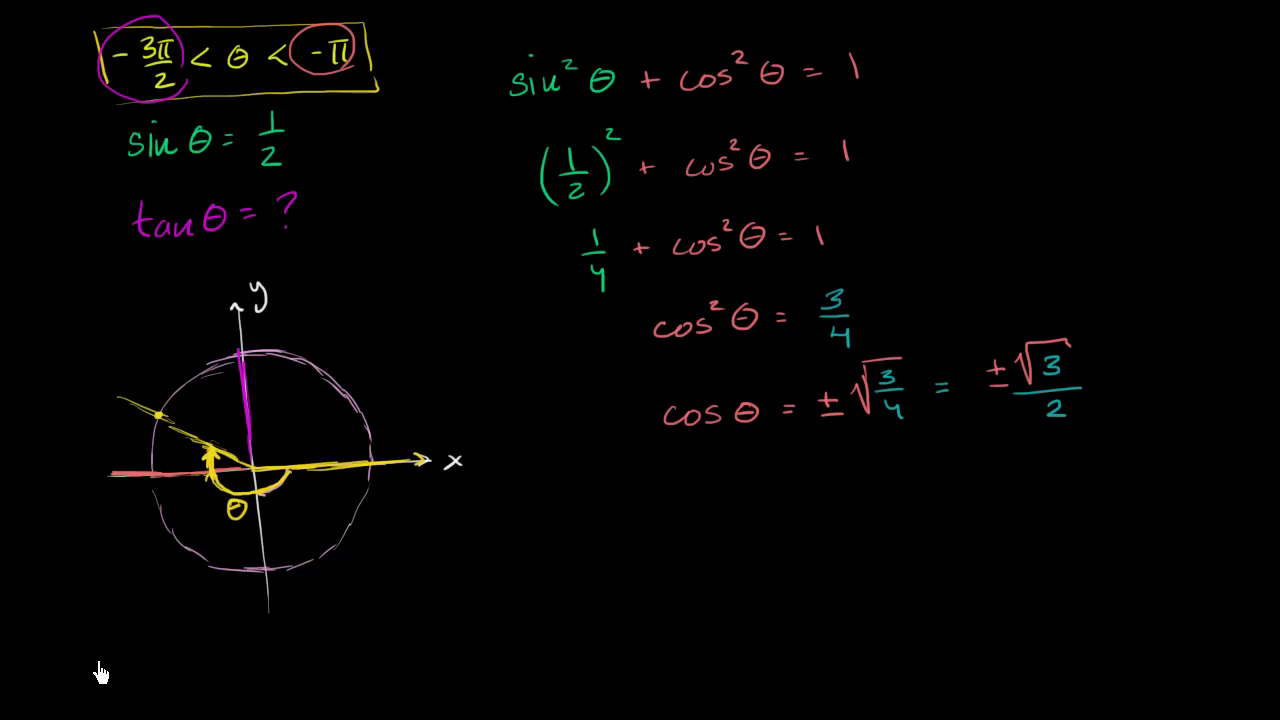 - 3π/2 < θ < -π
sin θ = 1/2
tan θ = ?
y
x
θ
sin² θ + cos² θ = 1
(1/2)² + cos² θ = 1
1/4 + cos² θ = 1
cos² θ = 3/4
cos θ = ± √(3/4) = ±√3/2